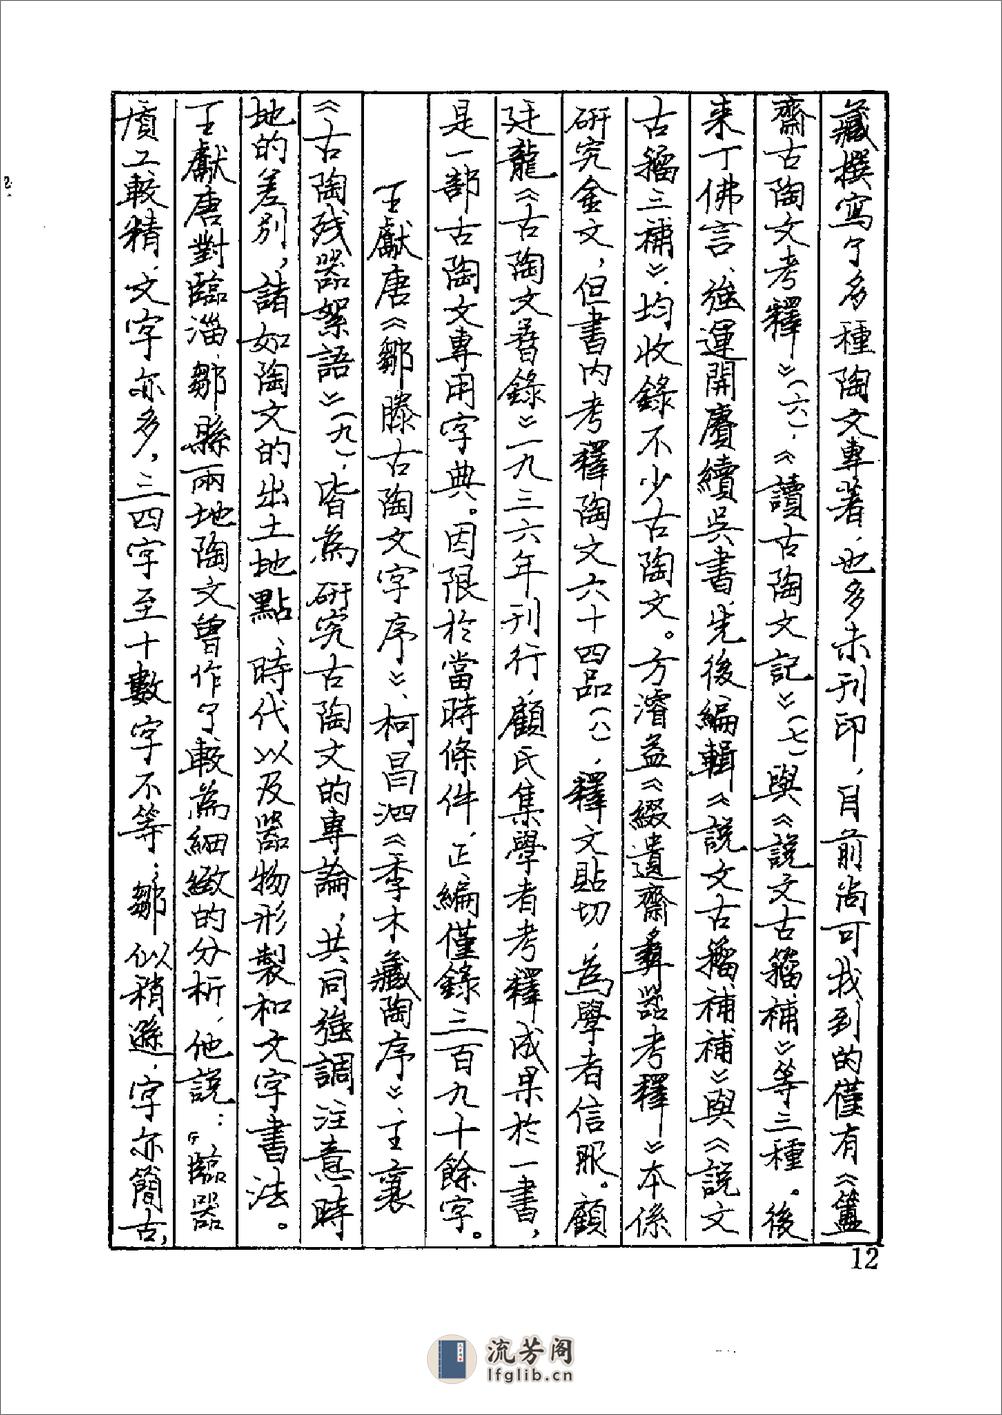 藏撰寫了多種陶文專著，也多未刊印，目前尚可找到的僅有《簠
齋古陶文考釋》(六)，《讀古陶文記》(七)與《説文古籀補》等三種。後
来丁佛言、強運開賡續吳書，先後編輯《説文古籀補補》與《説文
古籀三補》，均收錄不少古陶文。方濬益《綴遺齋彝器考釋》本係
研究金文，但書内考釋陶文六十四品(八)，釋文貼切，為學者信服。顧
廷龍《古陶文孴錄》一九三六年刊行，顧氏集學者考釋成果於一書，
是一部古陶文專用字典。因限於當時條件，正編僅錄三百九十餘字。
王獻唐《鄒滕古陶文字序》、柯昌泗《季木藏陶序》、王襄
《古陶残器絮語》(九)，皆為研究古陶文的專論，共同強調注意時
地的差别，諸如陶文的出土地點、時代以及器物形製和文字書法。
王獻唐對臨淄、鄒縣兩地陶文曾作了較為細緻的分析，他説：“臨器
質工較精，文字亦多，三四字至十數字不等；鄒似稍遜，字亦簡古，
12
流芳阁
lfglib.cn